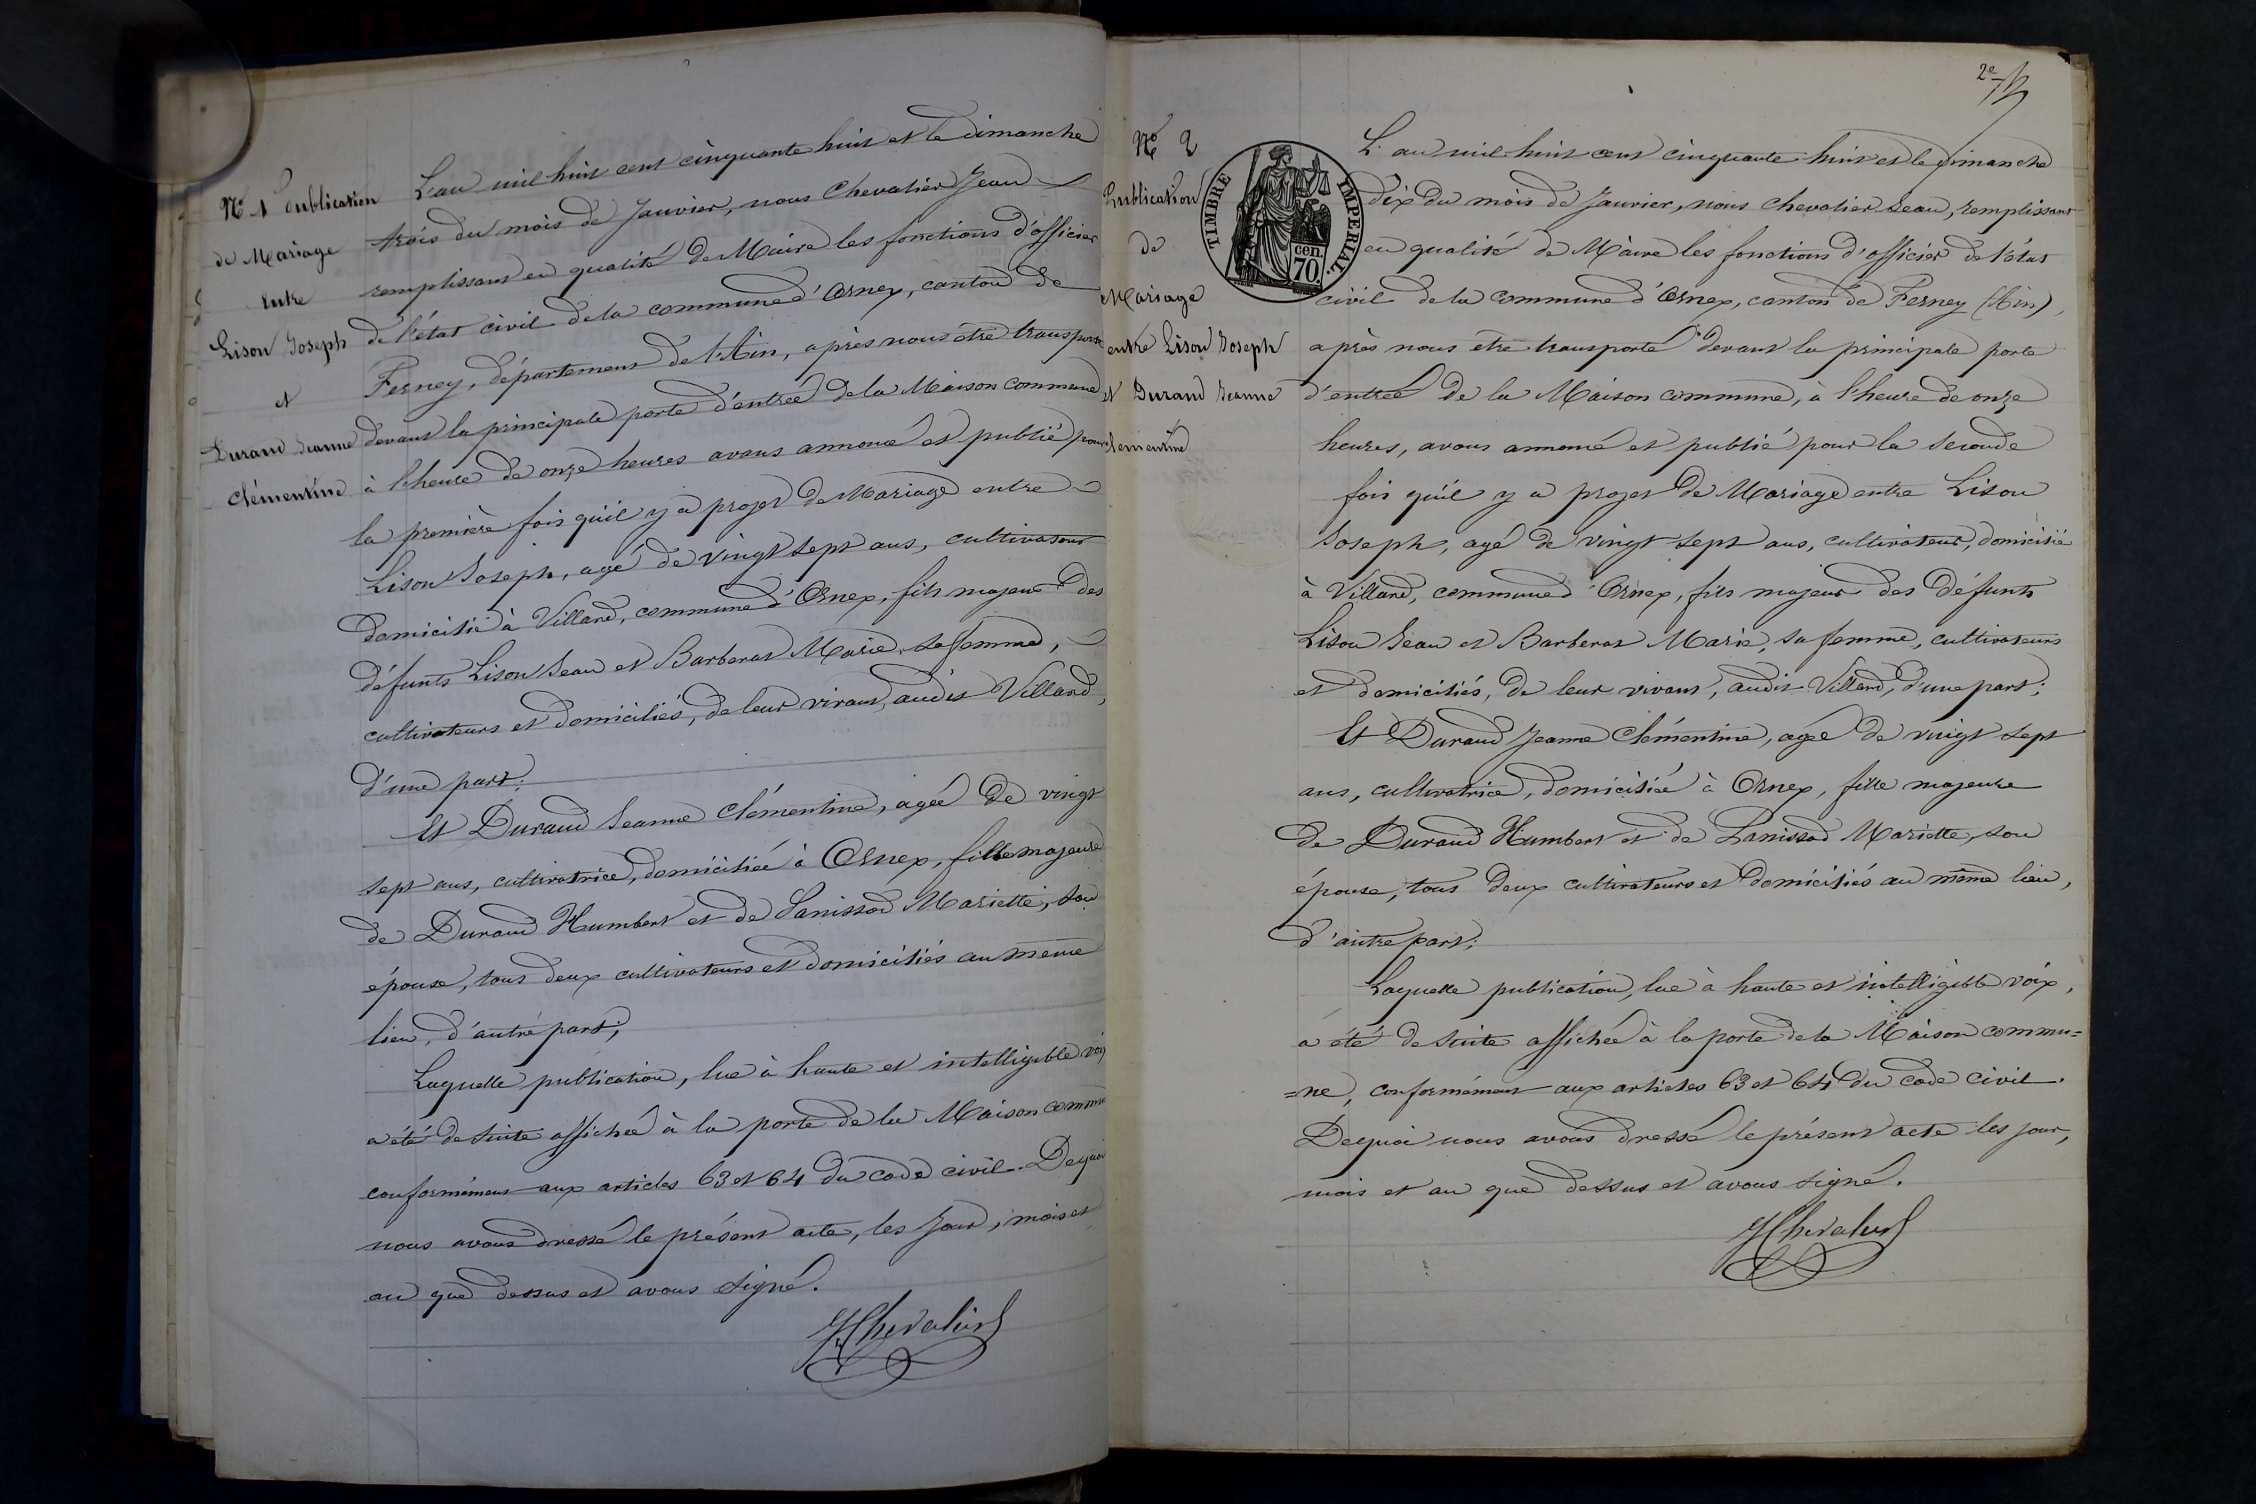 N° 1 Publication
de Mariage
entre
Lison Joseph
et
Durand Jeanne
Clémentine
L'an mil huit cent cinquante huit et le dimanche
trois du mois de Janvier, nous Chevalier Jean
remplissant en qualité de Maire les fonctions d'officier
de l'état civil de la commune d'Ornex, canton de
Ferney, département de l'Ain, après nous être transporté
devant la principale porte d'entrée de la Maison commune
à l'heure de onze heures avons annoncé et publié pour
la première fois qu'il y a projet de Mariage entre
Lison Joseph, agé de vingt sept ans, cultivateur
domicilié à Villard, commune d'Ornex, fils majeur des
défunts Lison Jean et Barberat Marie, sa femme,
cultivateurs et domiciliés, de leur vivant, audit Villard,
d'une part;
Et Durand Jeanne Clémentine, agée de vingt
sept ans, cultivatrice, domiciliée à Ornex, fille majeure
de Durand Humbert et de Panissod Mariette, son
épouse, tous deux cultivateurs et domiciliés au même
lieu, d'autre part;
Laquelle publication, lue à haute et intelligible voix
a été de suite affichée à la porte de la Maison commu
conformément aux articles 63 et 64 du code civil. Dequoi
nous avons dressé le présent acte, les jour, mois et
an que dessus et avons signé.
JChevalier
2e
N° 2
Publication
de
Mariage
entre Lison Joseph
et Durand Jeanne
Clémentine
TIMBRE IMPERIAL.
cen.
70.
L'an mil huit cent cinquante huit et le dimanche
dix du mois de Janvier, nous Chevalier Jean, remplissant
en qualité de Maire les fonctions d'officier de l'état
civil de la commune d'Ornex, canton de Ferney (Ain),
après nous etre transporté devant la principale porte
d'entrée de la Maison commune, à l'heure de onze
heures, avons annoncé et publié pour la seconde
fois qu'il y a projet de Mariage entre Lison
Joseph, agé de vingt sept ans, cultivateur, domicilié
à Villard, commune d'Ornex, fils majeur des défunts
Lison Jean et Barberat Marie, sa femme, cultivateurs
et domiciliés, de leur vivant, audit Villard, d'une part;
Et Durand Jeanne Clémentine, agée de vingt sept
ans, cultivatrice, domiciliée à Ornex, fille majeure
de Durand Humbert et de Panissod Mariette, son
épouse, tous deux cultivateurs et domiciliés au même lieu,
d'autre part;
Laquelle publication, lue à haute et intelligible voix,
a été de suite affichée à la porte de la Maison commu=
=ne, conformément aux articles 63 et 64 du code civil.
Dequoi nous avons dressé le présent acte les jour,
mois et an que dessus et avons signé.
JChevalier